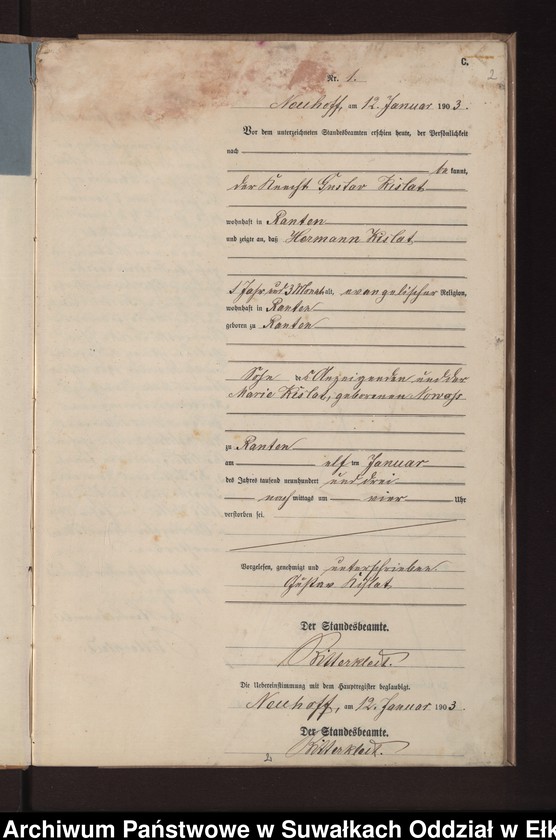 C.
2
Nr. 1.
Neuhoff, am 12. Januar 1903.
Vor dem unterzeichneten Standesbeamten erschien heute, der Persönlichkeit
nach
bekannt,
der Knecht Gustav Kislat
wohnhaft in Ranten
und zeigte an, daß Hermann Kislat
1 Jahr und 3 Monat alt, evangelischer Religion,
wohnhaft in Ranten
geboren zu Ranten
Sohn des Anzeigenden und der
Marie Kislat, geborenen
zu Ranten
am elften Januar
des Jahres tausend neunhundert und drei
nachmittags um vier Uhr
verstorben sei.
Vorgelesen, genehmigt und unterschrieben.
Gustav Kislat
Der Standesbeamte.
Die Uebereinstimmung mit dem Hauptregister beglaubigt.
Neuhoff, am 12. Januar 1903.
Der Standesbeamte.
2
Archiwum Państwowe w Suwałkach Oddział w Ełk